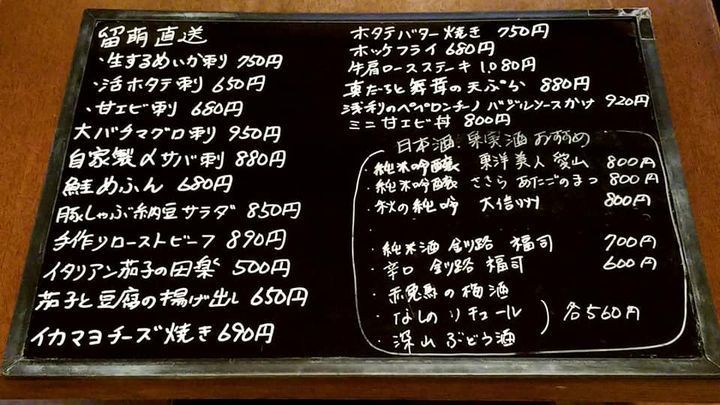 留萌直送
・生するめいか刺 750円
・活ホタテ刺 650円
・甘エビ刺 680円
大バチマグロ刺 950円
自家製〆サバ刺 880円
鮭めふん 680円
豚しゃぶ納豆サラダ 850円
手作りローストビーフ 890円
イタリアン茄子の田楽 500円
茄子と豆腐の揚げ出し 650円
イカマヨチーズ焼き 690円
ホタテバター焼き 750円
ホッケフライ 680円
牛肩ロースステーキ 1,080円
真たちと舞茸の天ぷら 880円
浅利のペペロンチーノ バジルソースかけ 920円
ミニ甘エビ丼 800円
日本酒・果実酒 おすすめ
・純米吟醸 東洋美人 愛山 800円
・純米吟醸 ささら あたごのまつ 800円
・秋の純吟 大信州 800円
・純米酒 釧路 福司 700円
・辛口 釧路 福司 600円
・赤兎馬の梅酒
・なしのリチュール 各560円
・深山ぶどう酒